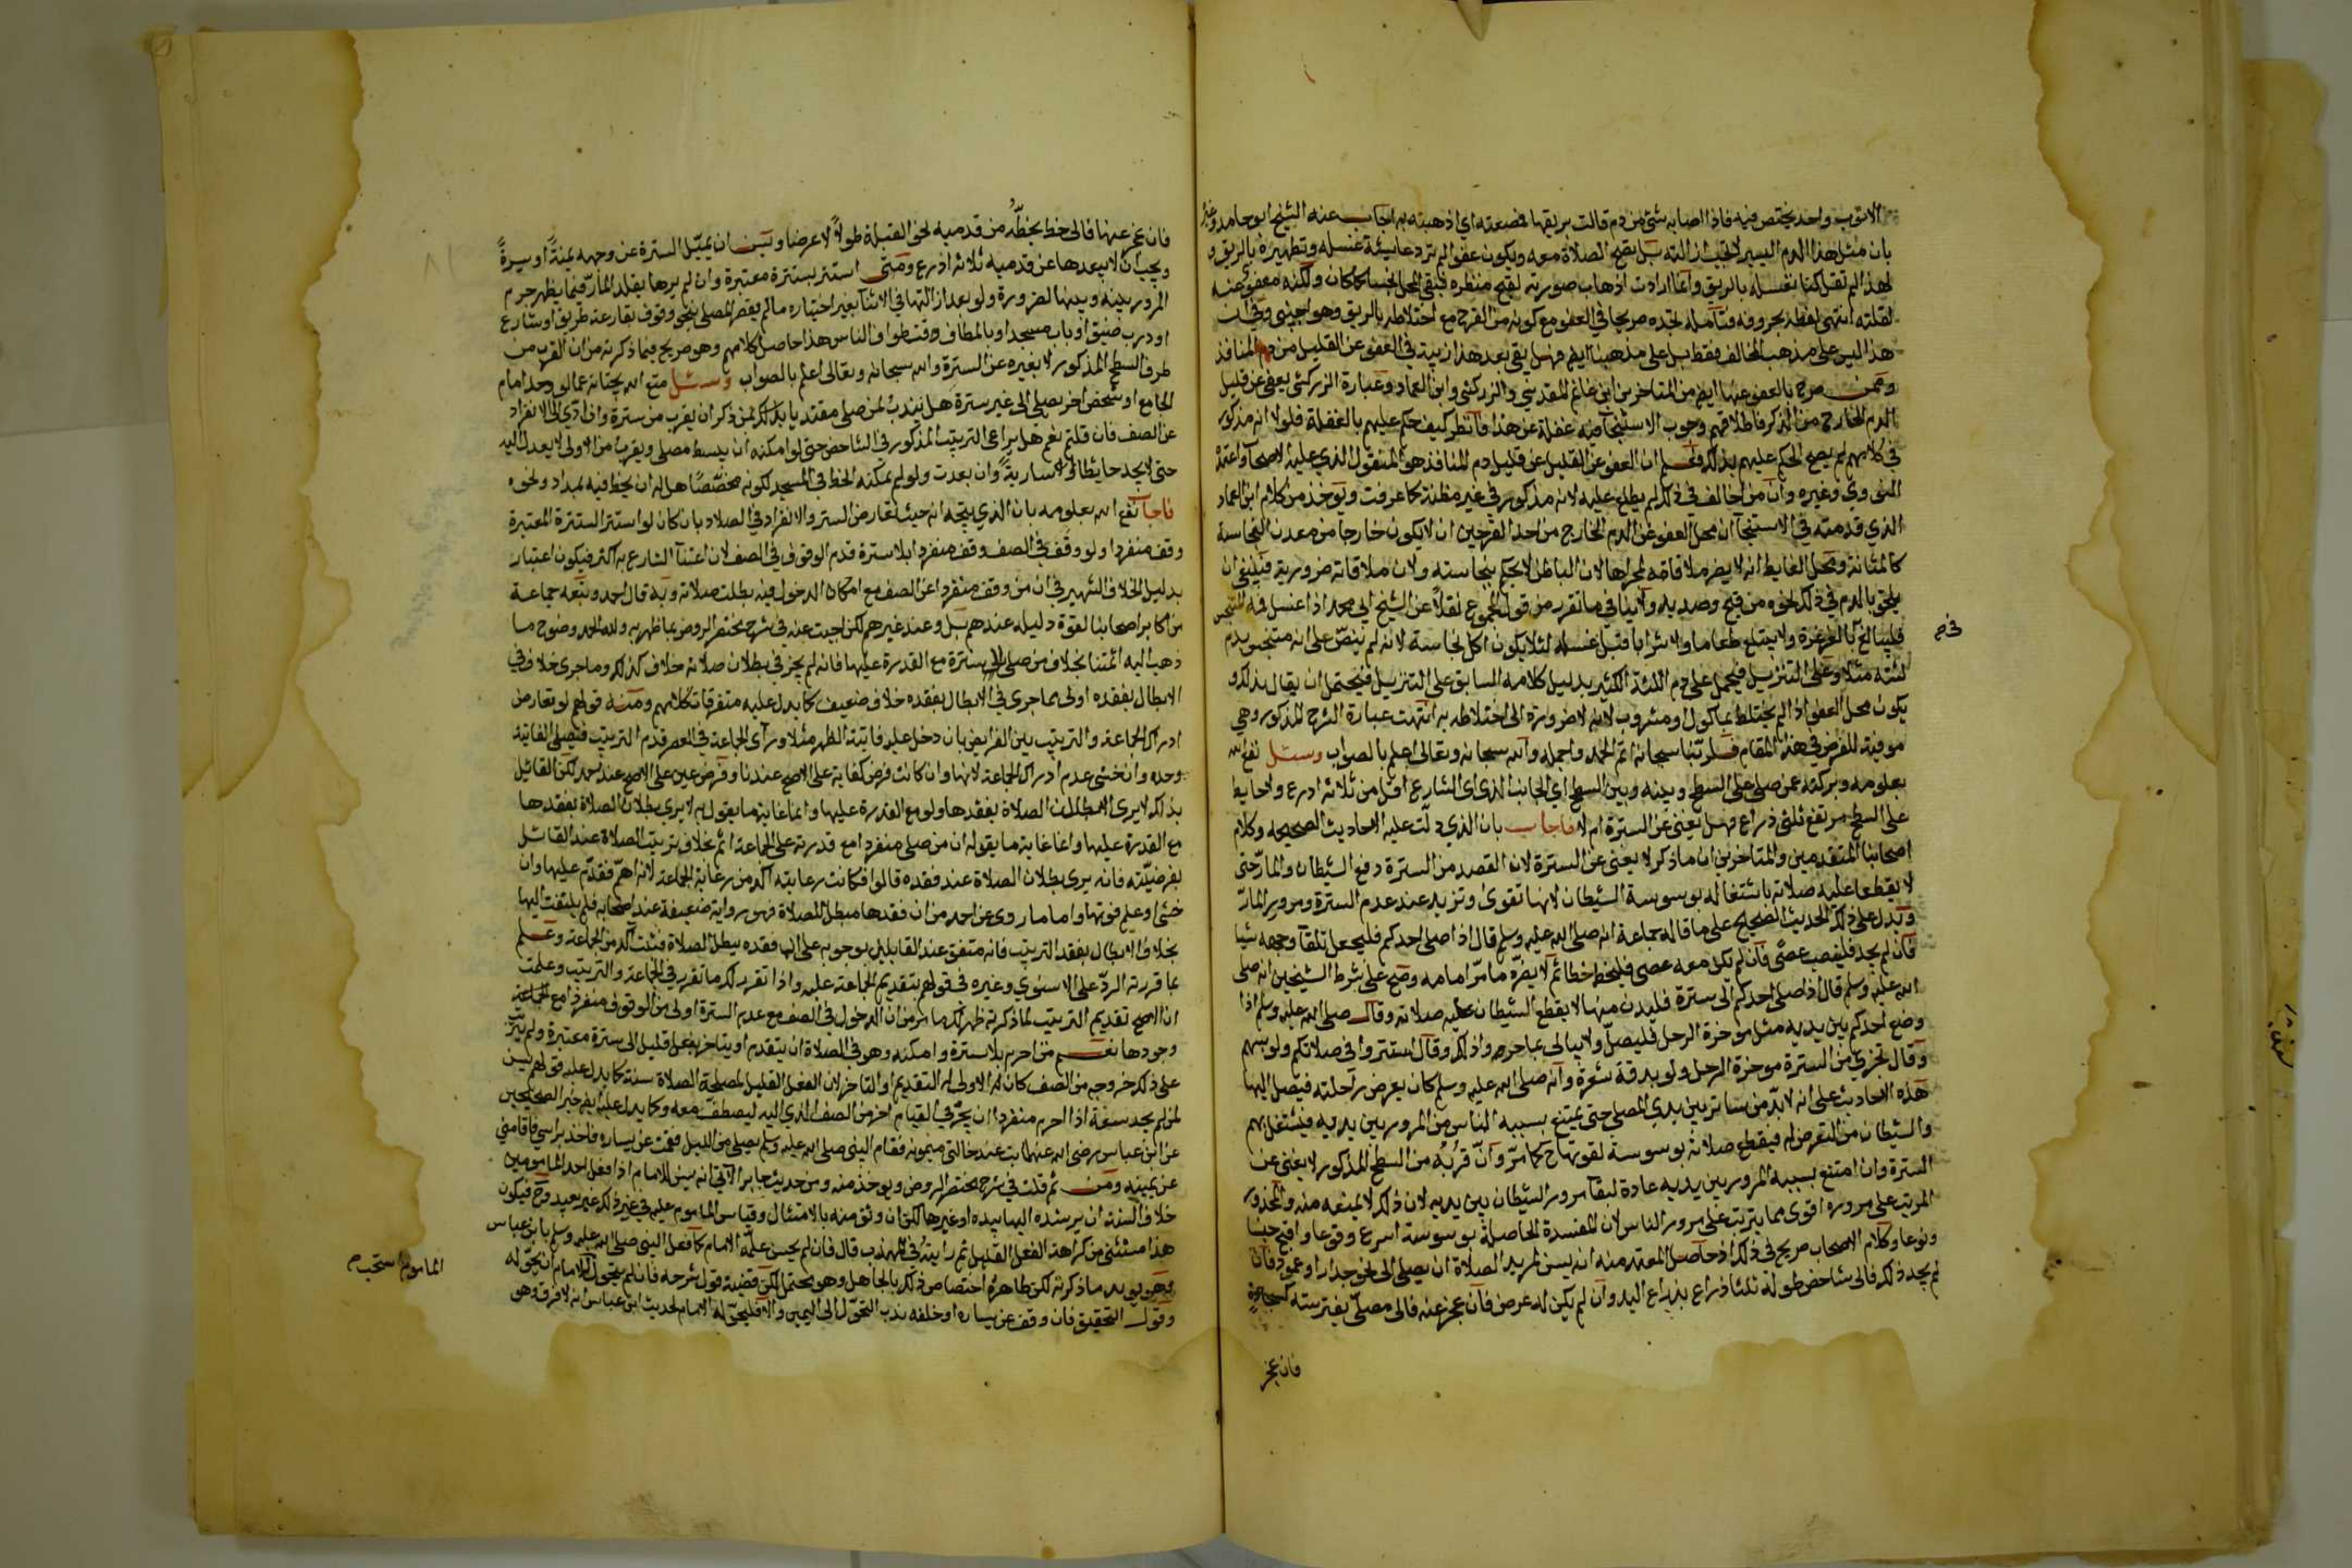 الا ثوب واحد يختص فيه فاذا اصابه شئ من دم قالت بريقها فمصعته اي اذهبته به اجاب عنه الشيخ ابو حامد وغيره
بان مثل هذا الدم اليسير لا تجب ازالته بل تصح الصلاة معه ويكون عفوا لم ترد عايشة غسله وتطهيره بالريق و
لهذا لم تقل كنا نغسله بالريق وانما ارادت اذهاب صورته لقبح منظره فيبقى المحل نجسا كما كان ولكنه معفو عنه
لقلته انتهى لفظه بحروفه فتامله تجده صريحا في العفو مع كونه من الفرج مع اختلاطه بالريق وهو اجنبي وفي ان
هذا ليس على مذهب المخالف فقط بل على مذهبنا ايضا فهل بقي بعد هذا ريبة في العفو عن القليل من دم المنافذ
وممن صرح بالعفو عنها ايضا من المتاخرين ابن غانم المقدسي والزركشي وابن العماد وعبارة الزركشي يعفى عن قليل
الدم الخارج من الذكر فاطلاقهم وجوب الاستنجا منه غفلة عن هذا فانظر كيف حكم عليهم بالغفلة فلولا انه مذكور
في كلامهم لم يصح الحكم عليهم بذلك فعلم ان العفو عن القليل عن قليل دم المنافذ هو المنقول الذي عليه الاصحاب واعتمده
النووي وغيره وان من خالف في ذلك لم يطلع عليه لانه مذكور في غير مظنة كما عرفت ويؤخذ من كلام ابن العماد
الذي قدمته في الاستنجا ان محل العفو عن الدم الخارج من احد الفرجين ان لا يكون خارجا من معدن النجاسة
كالمثانة ومحل الغايط انه لا يضر ملاقاته لمجراها لان الباطن لا يحكم بنجاسته ولان ملاقاته ضرورية فينبغي ان
يلحق بالدم في ذلك نحوه من قيح وصديد ولا ينافي ما تقرر من قول المجموع نقلا عن الشيخ ابي محمد اذا غسل فمه المتنجس
فليبالغ بالغرغرة ولا يبتلع طعاما ولا شرابا قبل غسله لئلا يكون اكل نجاسة لانه لم ينص على انه متنجس بدم
في ح
لثته مثلا وعلى التنزيل فيحمل على دم اللثة الكثير بدليل كلامه السابق على التنزيل فيحتمل ان يقال بذلك و
يكون محل العفو اذا لم يختلط بماكول او مشروب لانه لا ضرورة الى اختلاطه به انتهت عبارة الشرح المذكور وهي
موفية للغرض في هذا المقام فلربنا سبحانه اتم الحمد واجمله والله سبحانه وتعالى اعلم بالصواب وسئل نفع الله
بعلومه وبركته عمن صلى على السطح وبينه وبين السطح اي الجانب الذي الى الشارع اقل من ثلاثة اذرع ولا حايط
على السطح مرتفع ثلثي ذراع فهل يغني عن السترة ام لا فاجاب بان الذي دلت عليه الاحاديث الصحيحة وكلام
اصحابنا المتقدمين والمتاخرين ان ما ذكر لا يغني عن السترة لان القصد من السترة دفع الشيطان والمار حتى
لا يقطعا عليه صلاته باشتغاله بوسوسة الشيطان لانها تقوى وتزيد عند عدم السترة ومرور المار
ويدل على ذلك الحديث الصحيح على ما قاله جماعة انه صلى الله عليه وسلم قال اذا صلى احدكم فليجعل تلقا وجهه شيا
فان لم يجد فلينصب عصى فان لم تكن معه عصى فليخط خطا ثم لا يضره ما مر امامه وصح على شرط الشيخين انه صلى
الله عليه وسلم قال اذا صلى احدكم الى سترة فليدن منها لا يقطع الشيطان عليه صلاته وقال صلى الله عليه وسلم اذا
وضع احدكم بين يديه مثل مؤخرة الرحل فليصل ولا يبالي بما مر وراء ذلك وقال استتروا في صلاتكم ولو بسهم
وقال تجزي من السترة مؤخرة الرحل ولو بدقة شعرة وانه صلى الله عليه وسلم كان يعرض راحلته فيصلي اليها
هذه الاحاديث على انه لا بد من ساتر بين يدي المصلي حتى يمتنع بسببه الناس من المرور بين يديه فيشتغل بهم
والشيطان من التعرض له فيقطع صلاته بوسوسة لقوتها ح كما مر وان قربه من السطح المذكور لا يغني عن
السترة وان امتنع بسببه المرور بين يديه عادة لبقا مرور الشيطان بين يديه لان ذلك لا يمنعه منه والمحذور
المرتب على مروره اقوى مما يترتب على مرور الناس لان المفسدة الحاصلة بوسوسة اسرع وقوعا واقبح جنسا
ونوعا وكلام الاصحاب صريح في ذلك اذ حاصل المعتمد منه انه يسن لمريد الصلاة ان يصلي الى نحو جدار او عمود فان
لم يجد ذلك فالى شاخص طوله ثلثا ذراع بذراع اليد وان لم يكن له عرض فان عجز عنه فالى مصلى يفترشه كسجادة
فان عجز
فان عجز عنها فالى خط يخطه من قدميه نحو القبلة طولا لا عرضا ويسن ان يميل السترة عن وجهه يمنة او يسرة
ويجب ان لا يبعدها عن قدميه ثلاثة اذرع ومتى استتر بسترة معتبرة وان لم يرها مقلد المار فيما يظهر حرم
المرور بينه وبينها الا لضرورة ولو بعد ازالتها في الاثنا بغير اختياره ما لم يقصر المصلي بنحو وقوف بقارعة طريق او شارع
او درب ضيق او باب مسجد او بالمطاف وقت طواف الناس هذا حاصل كلامهم وهو صريح فيما ذكرته من ان القرب من
طرف السطح المذكور لا يغنيه عن السترة والله سبحانه وتعالى اعلم بالصواب وسئل متع الله بحياته عما لو وجد امام
الجامع او شخص اخر يصلي الى غير سترة هل يندب لمن صلى مقتديا بذلك لمن ذكر ان يقرب من سترة وان ادى الى الانفراد
عن الصف فان قلتم نعم هل يراعى الترتيب المذكور في الشاخص حتى لو امكنه ان يبسط مصلى ويقرب من الاولى لا يعدل اليه
حتى لا يجد حايطا او سارية وان بعدت ولو لم يمكنه الخط في المسجد لكونه مجصصا هل له ان يخط فيه بمداد ونحوه
فاجاب نفع الله بعلومه بان الذي يتجه انه حيث تعارض الستر والانفراد في الصلاة بان كان لو استتر السترة المعتبرة
وقف منفردا ولو وقف في الصف وقف منفردا بلا سترة قدم الوقوف في الصف لان اعتنا الشارع به اكثر فيكون اعتبار
بدليل الخلاف الشهير في ان من وقف منفردا عن الصف مع امكان الدخول فيه بطلت صلاته وبه قال احمد وتبعه جماعة
من اكابر اصحابنا لقوة دليله عندهم بل وعند غيرهم لكن اجبت عنه في شرح مختصر الروض بما ظهر به ولله الحمد وضوح ما
ذهب اليه ائمتنا بخلاف من صلى الى سترة مع القدرة عليها فانه لم يجر في بطلان صلاته خلاف كذلك وما جرى خلاف في
الابطال بفقده اولى مما جرى في الابطال بفقده خلاف ضعيف كما يدل عليه متفرقات كلامهم ومنه قولهم لو تعارض
ادراك الجماعة والترتيب بين الفرايض بان دخل عليه فايتة الظهر مثلا وراى الجماعة في العصر قدم الترتيب فيصلي الفايتة
وحده وان خشي عدم ادراك الجماعة لانها وان كانت فرض كفاية على الاصح عندنا وفرض عين على الاصح عند احمد لكن القائل
بذلك لا يرى بطلان الصلاة بفقدها ولو مع القدرة عليها وانما غاية ما يقول به لا يرى بطلان الصلاة بفقدها
مع القدرة عليها وانما غاية ما يقوله ان من صلى منفردا مع قدرته على الجماعة اثم بخلاف ترتيب الصلاة عند القائل
بفرضيته فانه يرى بطلان الصلاة عند فقده قالوا فكانت رعايته اكد من رعاية الجماعة لانه اهم فقدم عليها وان
خشي او علم فوتها واما ما روي عن احمد من ان فقدها مبطل للصلاة فهو رواية ضعيفة عند اصحابه فلم يلتفت اليها
بخلاف الابطال بفقد الترتيب فانه متفق عند القايلين بوجوبه على ان فقده يبطل الصلاة فثبت اكد من الجماعة وعلم
بما قررته الرد على الاسنوي وغيره في قولهم بتقديم الجماعة عليه واذا تقرر لك ما تقرر في الجماعة والترتيب وعلمت
ان الاصح تقديم الترتيب لما ذكرته ظهر لك ما مر من ان الدخول في الصف مع عدم السترة اولى من الوقوف منفردا مع الجماعة
وجودها نعم من احرم بلا سترة وامكنه وهو في الصلاة ان يتقدم او يتاخر بفعل قليل الى سترة معتبرة ولم يترتب
على ذلك خروجه من الصف كان له الاولى له التقديم او التاخر لان الفعل القليل لمصلحة الصلاة سنة كما يدل عليه قولهم يسن
لمن لم يجد سعة اذا احرم منفردا ان يجر في القيام اخر من الصف الذي اليه ليصطف معه وكما يدل عليه ايضا خبر الصحيحين
عن ابن عباس رضي الله عنهما بت عند خالتي ميمونة فقام النبي صلى الله عليه وسلم يصلي من الليل فقمت عن يساره فاخذ براسي فاقامني
عن يمينه ومن ثم قلت في شرح مختصر الروض ويؤخذ منه ومن حديث جابر الاتي انه يسن للامام اذا فعل احد المامومين
خلاف السنة ان يرشده اليها بيده او غيرها لكن ان وثق منه بالامتثال وقياس الماموم عليه في غير ذلك غير بعيد وح فيكون
هذا مستثنى من كراهة الفعل القليل ثم رايته في المهذب قال فان لم يحسن علمه الامام كما فعل النبي صلى الله عليه وسلم بابن عباس
وهو يؤيد ما ذكرته لكن ظاهره اختصاص ذلك بالجاهل وهو محتمل لكن قضية قول شرحه فان لم يتحول للامام ان يحوله
الماموم استحب م
وقول التحقيق فان وقف عن يساره او خلفه ندب التحول الى اليمين والا فليحوله الامام لحديث ابن عباس انه لا فرق وهو